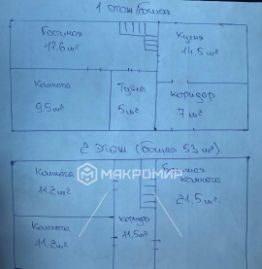 1 этаж (общая
Гостиная
17,6 м²
Кухня
14,5 м²
Комната
9,5 м²
Туалет
5 м²
Коридор
7 м²
2 этаж (общая 53 м²)
Комната
11,2 м²
Большая
комната
21,5 м²
МАКРОМИР
Комната
11,2 м²
Коридор
11,5 м²